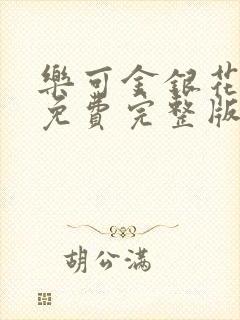 樂可金銀花
免費完整版
胡公滿